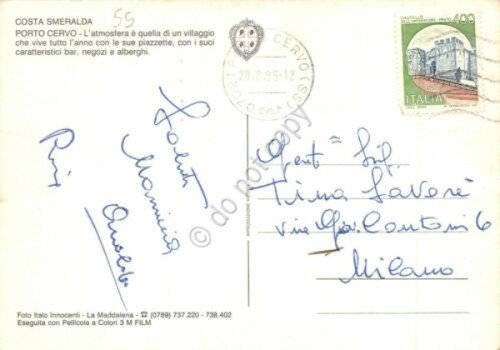 COSTA SMERALDA
55
PORTO CERVO - L'atmosfera è quella di un villaggio
che vive tutto l'anno con le sue piazzette, con i suoi
caratteristici bar, negozi e alberghi.
PORTO CERVO (SS)
CASTELLO
DELL'IMPERATORE · PRATO
400
ITALIA
Saluti
Arnaldo
Gent
Tina
via Cantoni 6
Milano
RIPRODUZIONE VIETATA
do not copy
Foto Italo Innocenti - La Maddalena - ☎ (0789) 737.220 - 738.402
Eseguita con Pellicola a Colori 3 M FILM